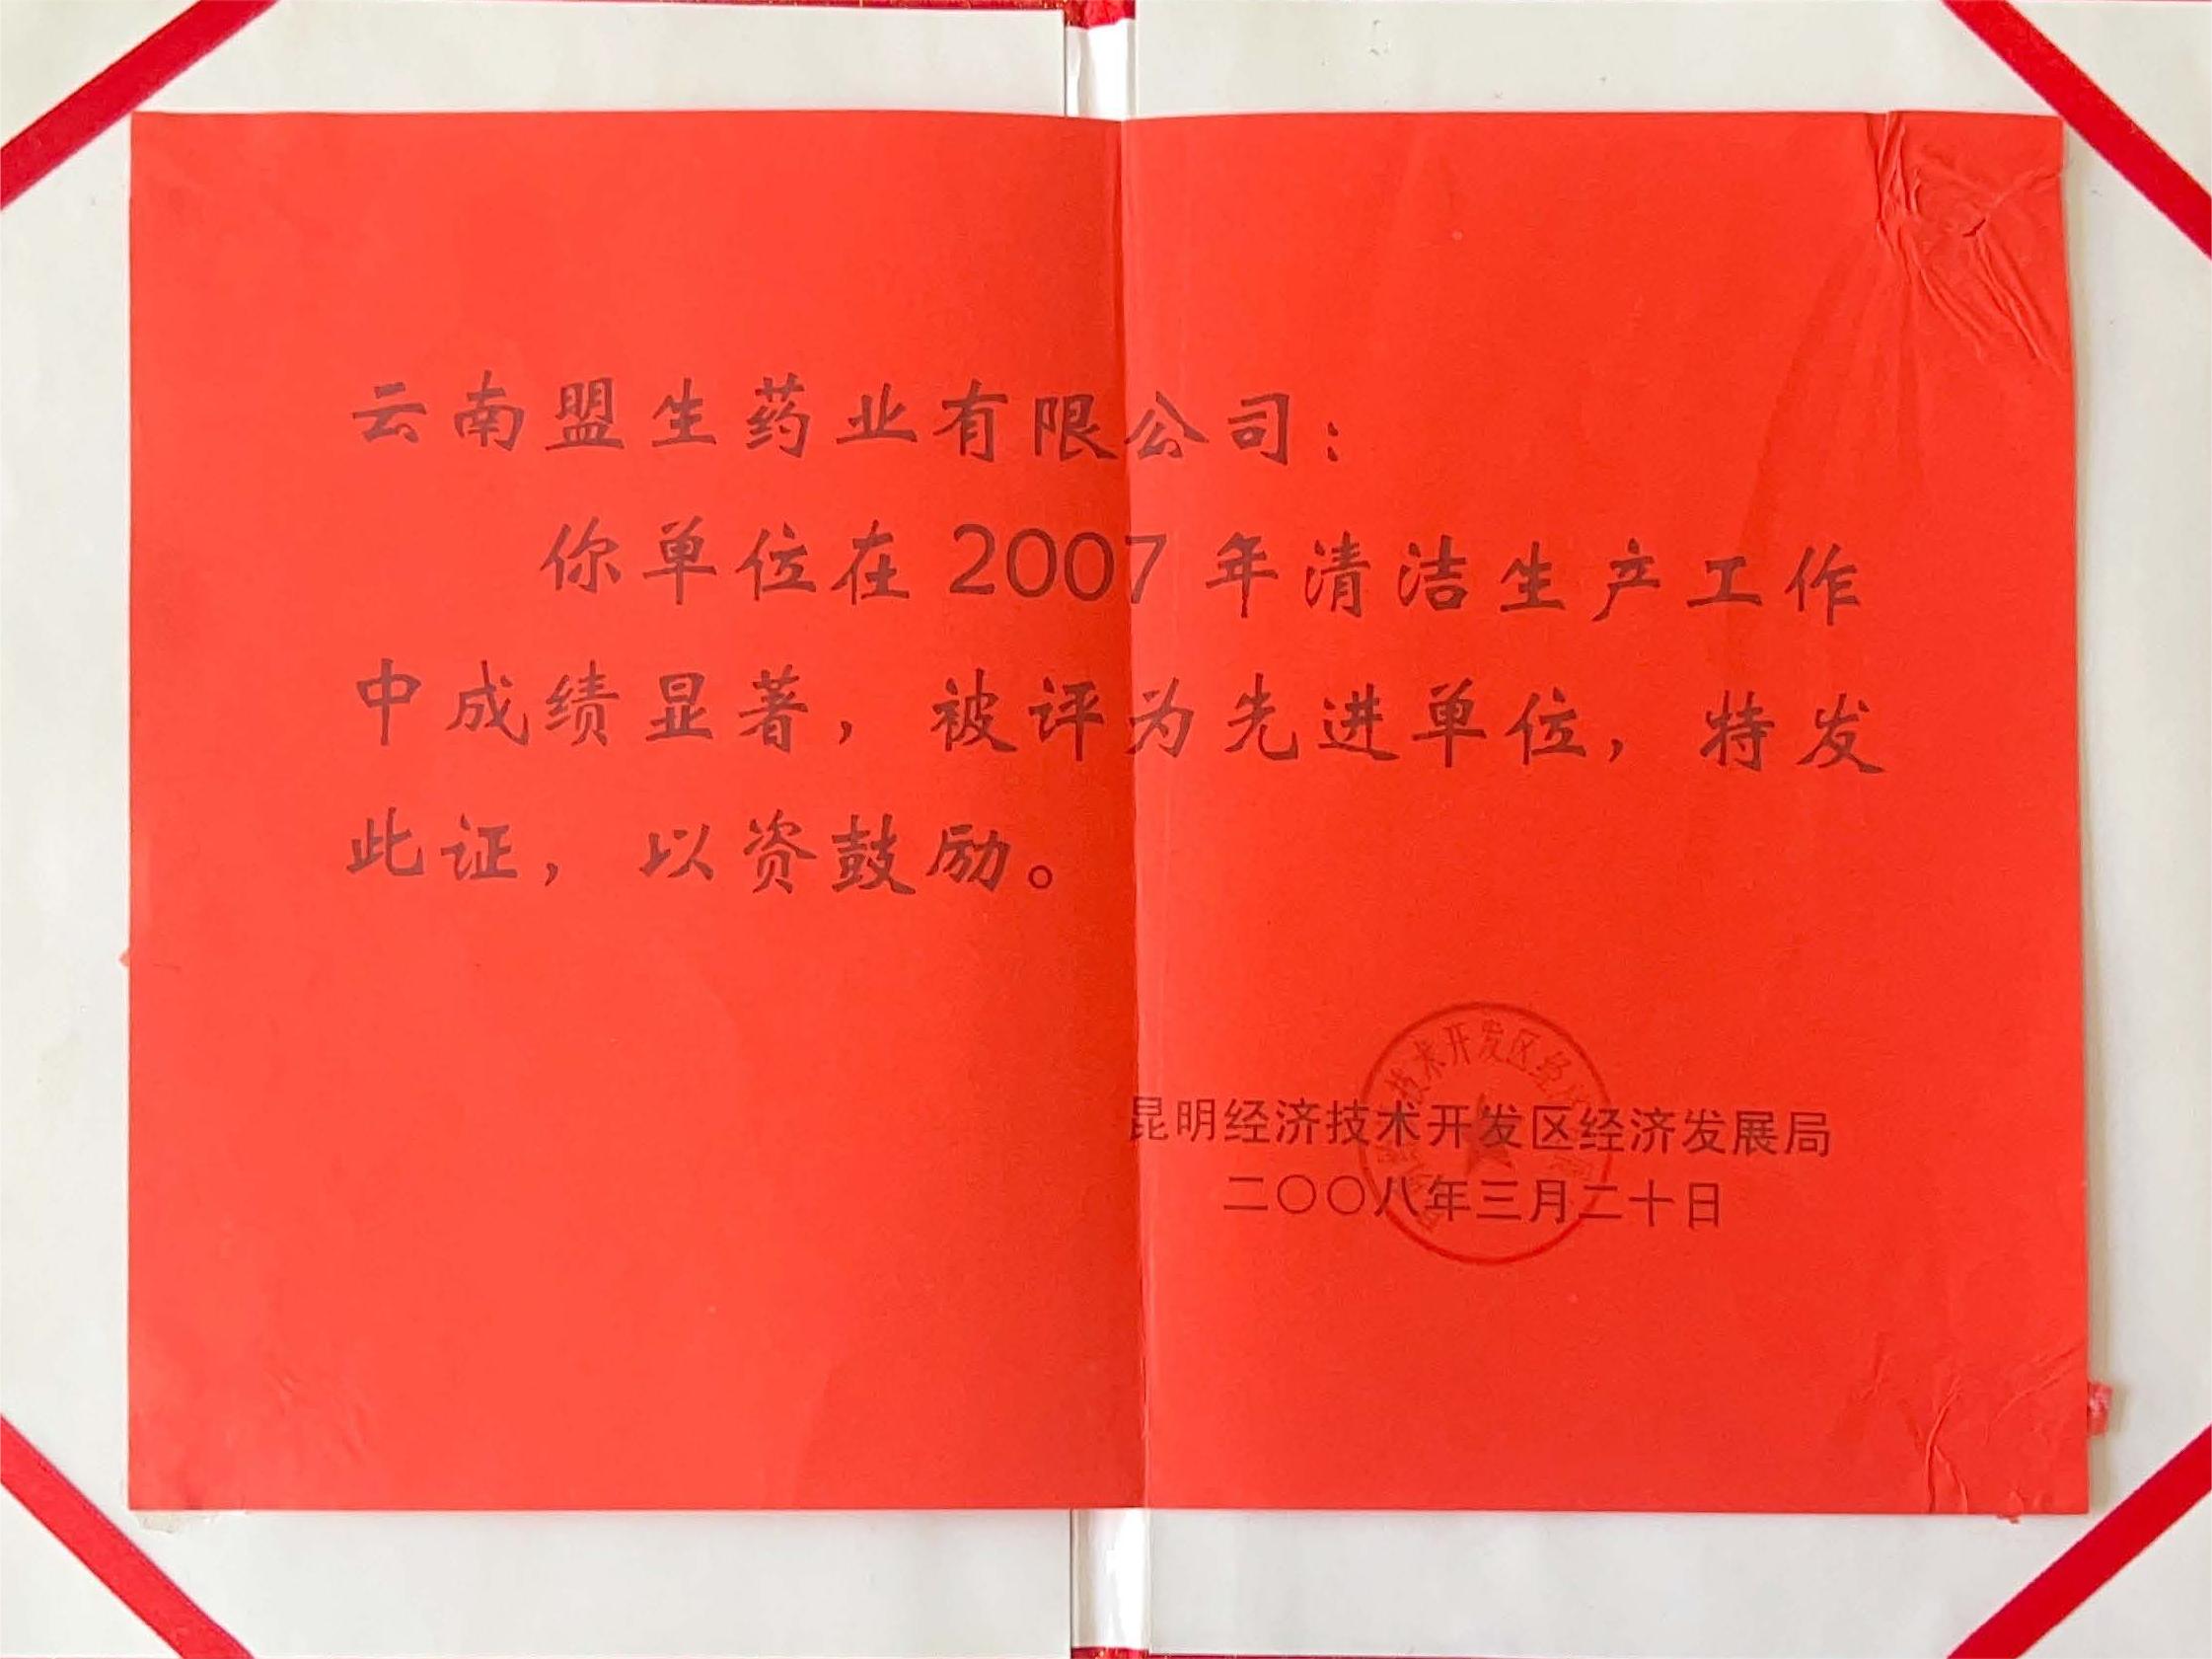 云南盟生药业有限公司：
你单位在 2007 年清洁生产工作
中成绩显著，被评为先进单位，特发
此证，以资鼓励。
技术开发区经济
昆明经济技术开发区经济发展局
二〇〇八年三月二十日